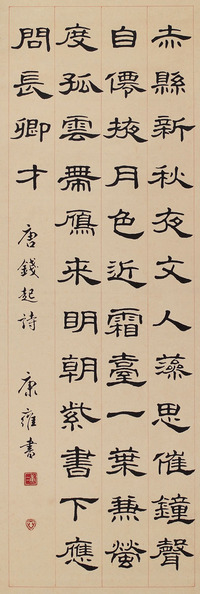 赤縣新秋夜文人藻思催鐘聲
自僊掖月色近霜臺一葉兼螢
度孤雲帶鴈來明朝紫書下應
問長卿才
唐錢起詩 康雍書